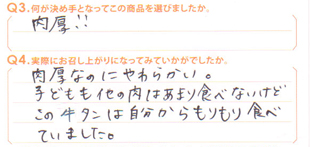 Q3.何が決め手となってこの商品を選びましたか。
肉厚!!
Q4.実際にお召し上がりになってみていかがでしたか。
肉厚なのにやわらかい。
子どもも他の肉はあまり食べないけど
この牛タンは自分からもりもり食べ
ていました。